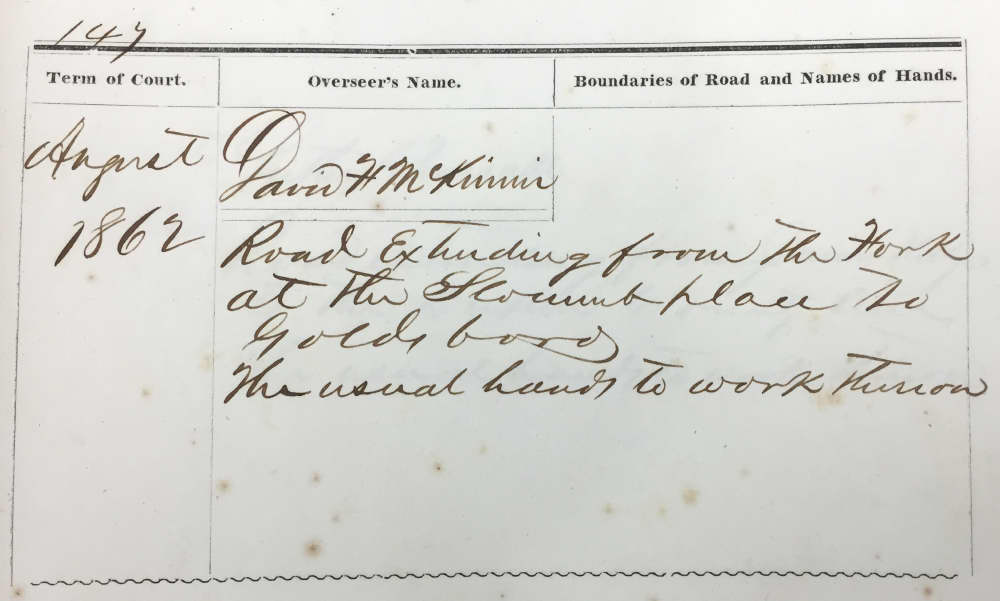 147
Term of Court. Overseer's Name. Boundaries of Road and Names of Hands.
August David H McKinnin
1862 Road Extending from the Fork
at the Slocumb place to
Goldsboro
The usual hands to work thereon